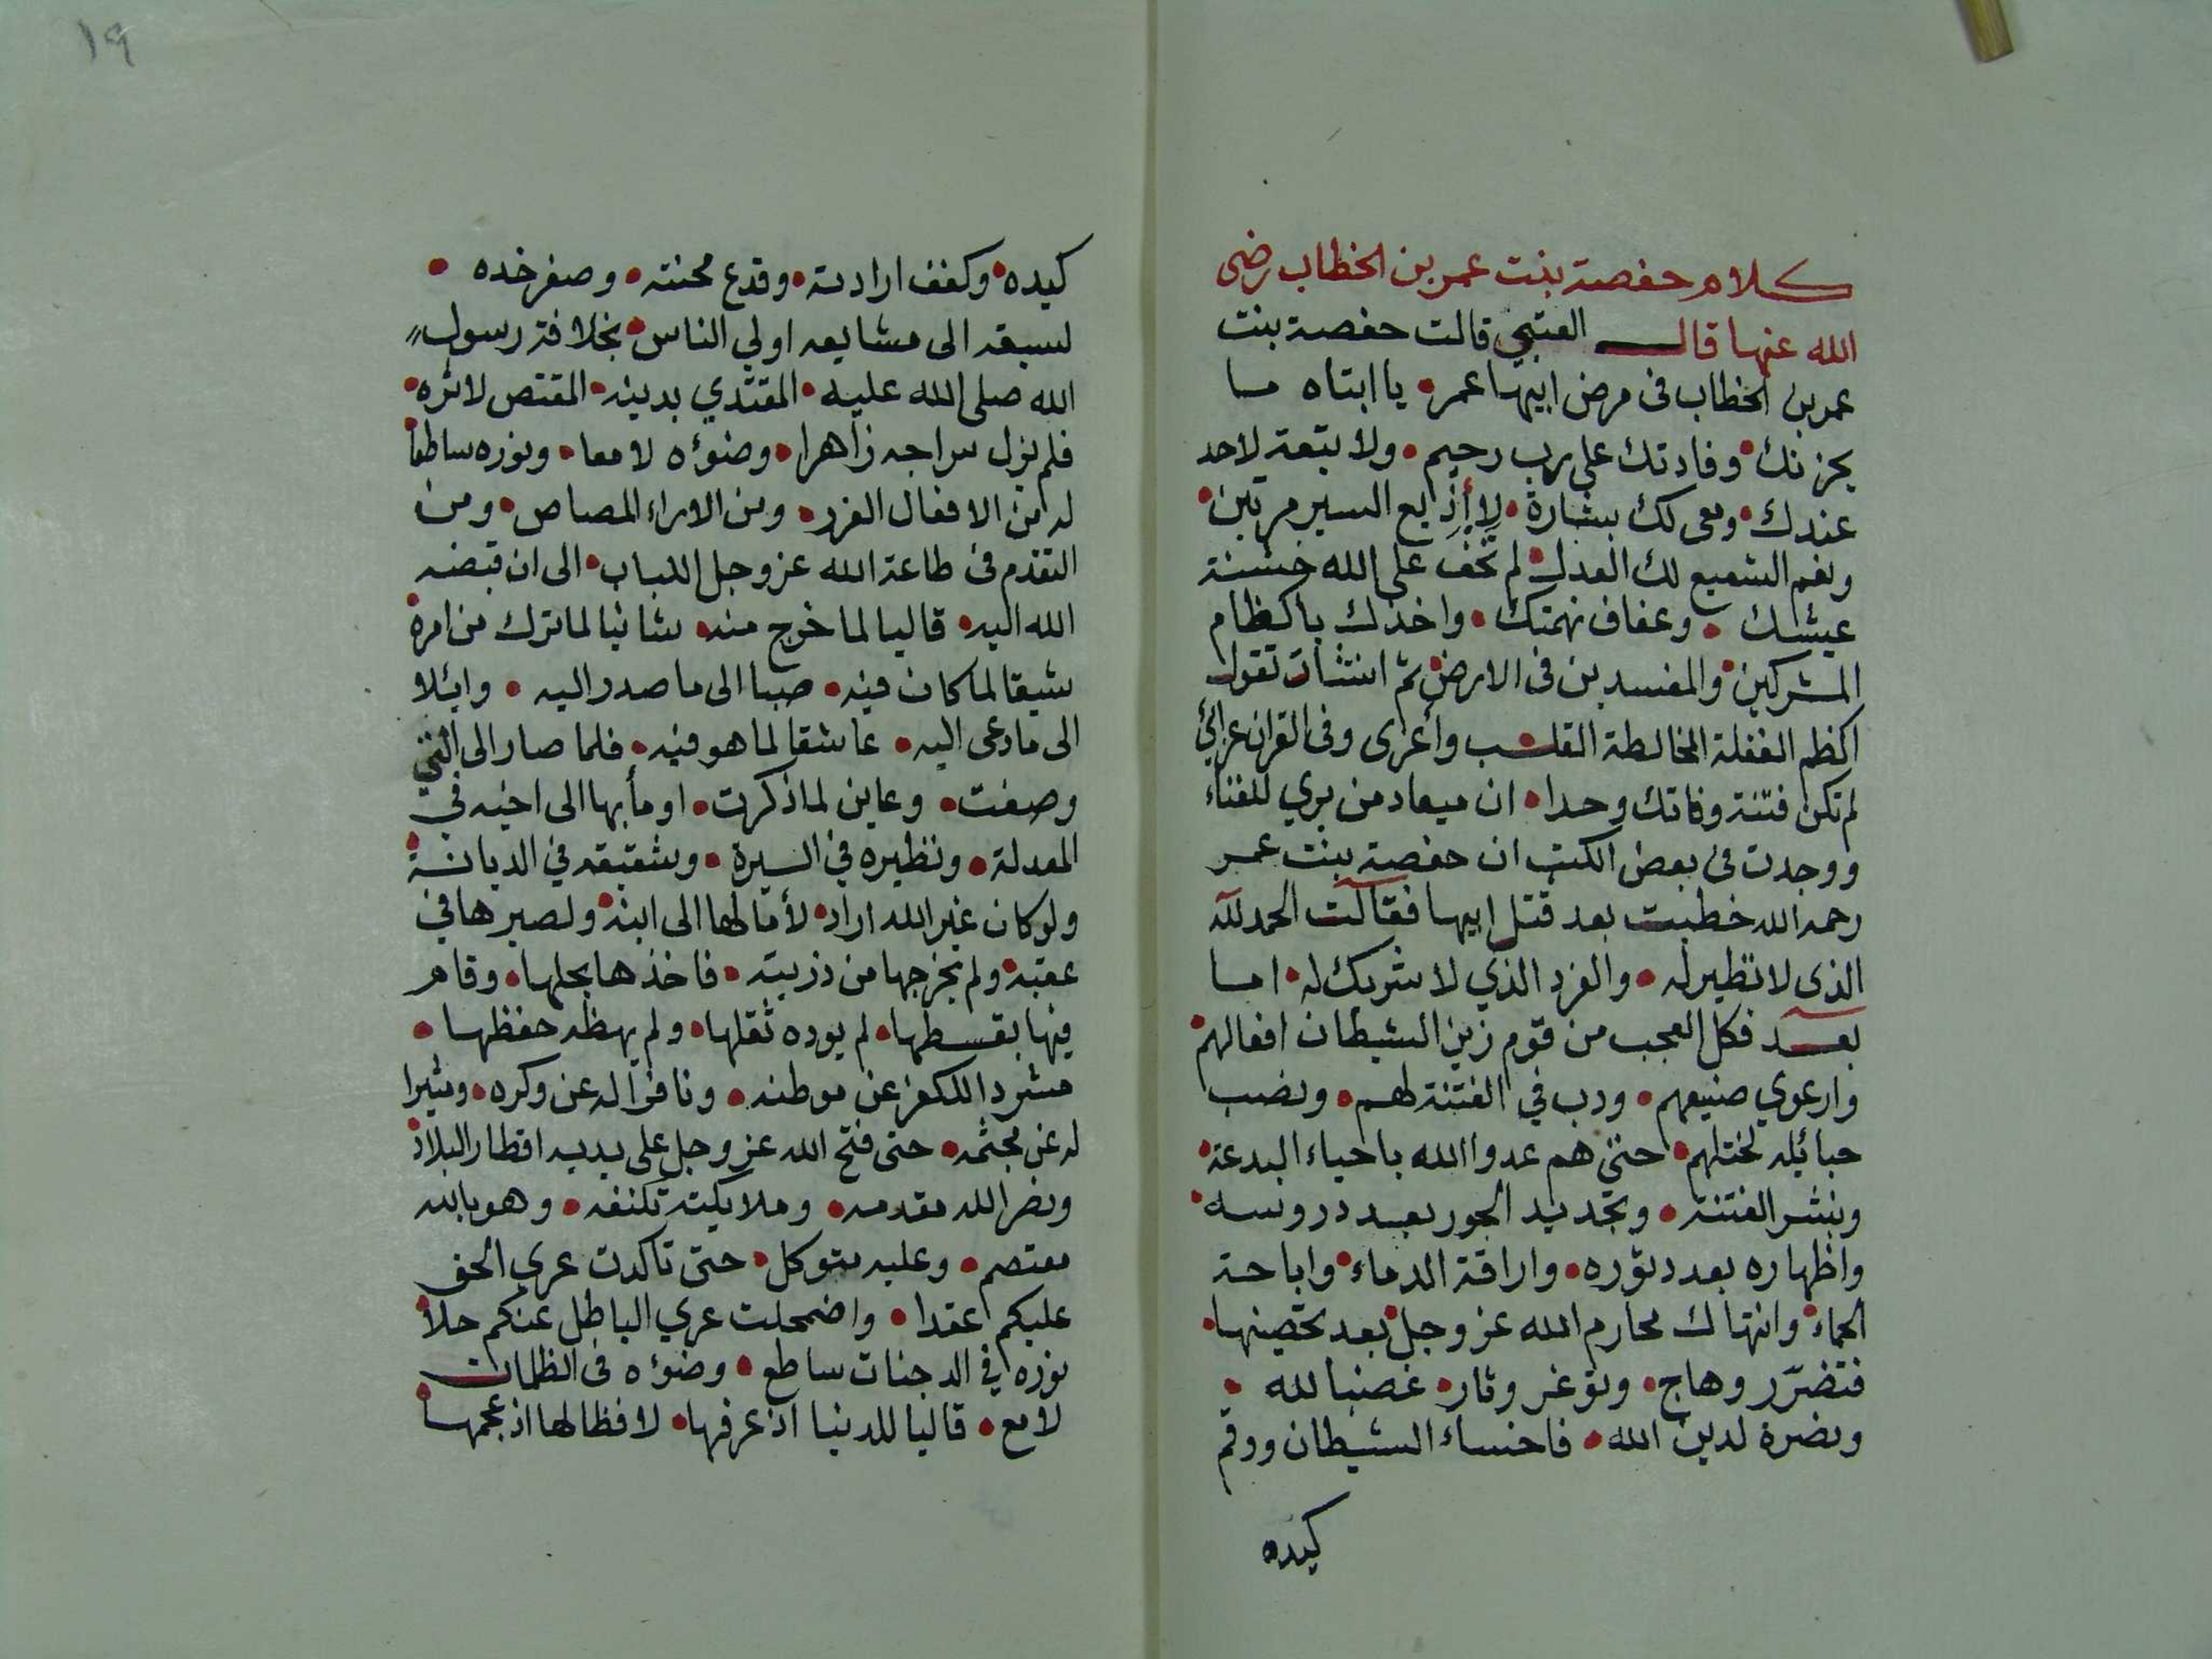 كلام حفصة بنت عمر بن الخطاب رضى
الله عنها قال العتبي قالت حفصة بنت
عمر بن الخطاب فى مرض ابيها عمر • يا ابتاه ما
يحزنك • وفادتك على رب رحيم • ولا تبعة لاحد
عندك • ومعى لك بشارة • لا أذيع السر مرتين •
ونعم الشفيع لك العدل • لم تخف على الله خشنة
عيشك • وعفاف نهمتك • واخذك باكظام
المشركين • والمفسدين فى الارض • ثم انشأت تقول
اكظم الغفلة المخالطة القلب • وأعزى وفى القران عزائي
لم تكن فتنة وفاتك وحدا • ان ميعاد من يري للفناء
ووجدت فى بعض الكتب ان حفصة بنت عمر
رحمه الله خطبت بعد قتل ابيها فقالت الحمد لله
الذى لا نظير له • والفرد الذي لا شريك له • اما
بعد فكل العجب من قوم زين الشيطان افعالهم •
وارعوي صنيعهم • ودب في الفتنة لهم • ونصب
حبائله لختلهم • حتى هم عدوا الله باحياء البدعة •
ونشر الفتنة • وتجديد الجور بعد دروسه •
واظهاره بعد دثوره • واراقة الدماء • واباحة
الحماء • وانتهاك محارم الله عز وجل • بعد تحصينها •
فتضرر وهاج • وتوغر وثار • غضبا لله •
ونصرة لدين الله • فاخساء الشيطان ووقم
كيده
١٩
كيده • وكفف ارادته • وقدع محنته • وصغر خده •
لسبقه الى مشايعه اولي الناس • بخلافة رسول
الله صلى الله عليه • المقتدي بدينه • المقتص لاثره •
فلم يزل سراجه زاهرا • وضوءه لامعا • ونوره ساطعا
له من الافعال الغرر • ومن الاراء المصاص • ومن
التقدم فى طاعة الله عز وجل اللباب • الى ان قبضه
الله اليه • قاليا لما خرج منه • شانيا لما ترك من امره •
شيقا لما كان فيه • صبا الى ما صدر اليه • وايلا
الى ما دعى اليه • عاشقا لما هو فيه • فلما صار الى التي
وصفت • وعاين لما ذكرت • اومأ بها الى اخيه في
المعدلة • ونظيره في السيرة • وشقيقه في الديانة •
ولو كان غير الله اراد • لأمالها الى ابنه • ولصيرها في
عقبه • ولم يخرجها من ذريته • فاخذها بحلها • وقام
فيها بقسطها • لم يوده ثقلها • ولم يبهظه حفظها •
مشردا للكفر عن موطنه • ونافرا له عن وكره • ومثيرا
له عن مجثمه • حتى فتح الله عز وجل على يديه اقطار البلاد •
ونصر الله مقدمه • وملايكته تكنفه • وهو بالله
معتصم • وعليه متوكل • حتى تاكدت عرى الحق
عليكم عقدا • واضمحلت عري الباطل عنكم حلا •
نوره في الدجنات ساطع • وضوءه فى الظلمات
لامع • قاليا للدنيا اذ عرفها • لافظا لها اذ عجمها •